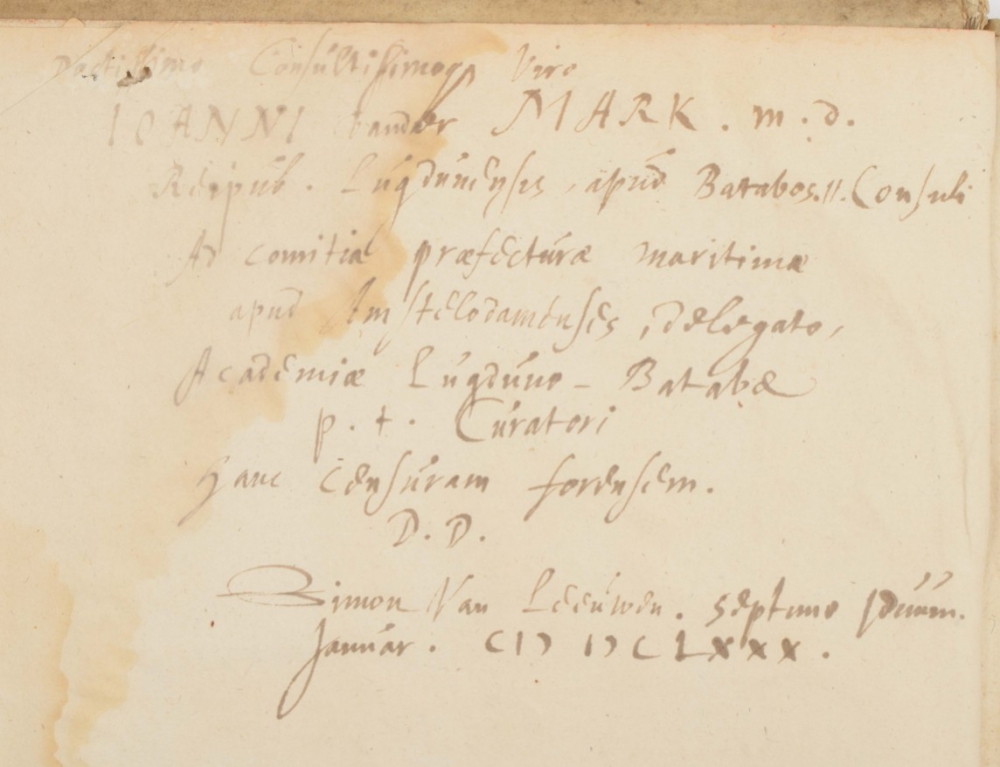 Doctissimo Consultissimoq Viro
IOANNI vander MARK. m.d.
Reipub. Lugdunensis, apud Batabos.,,. Consuli
Ad comitia præfecturæ maritimæ
apud Amstelodamenses, delegato,
Academiæ Lugduno-Batabæ
p.t. Curatori
Hanc Censuram forensem.
D.D.
Simon Van Leeuwen. septimo Iduum.
Januar. CIↃ IↃCLXXX.